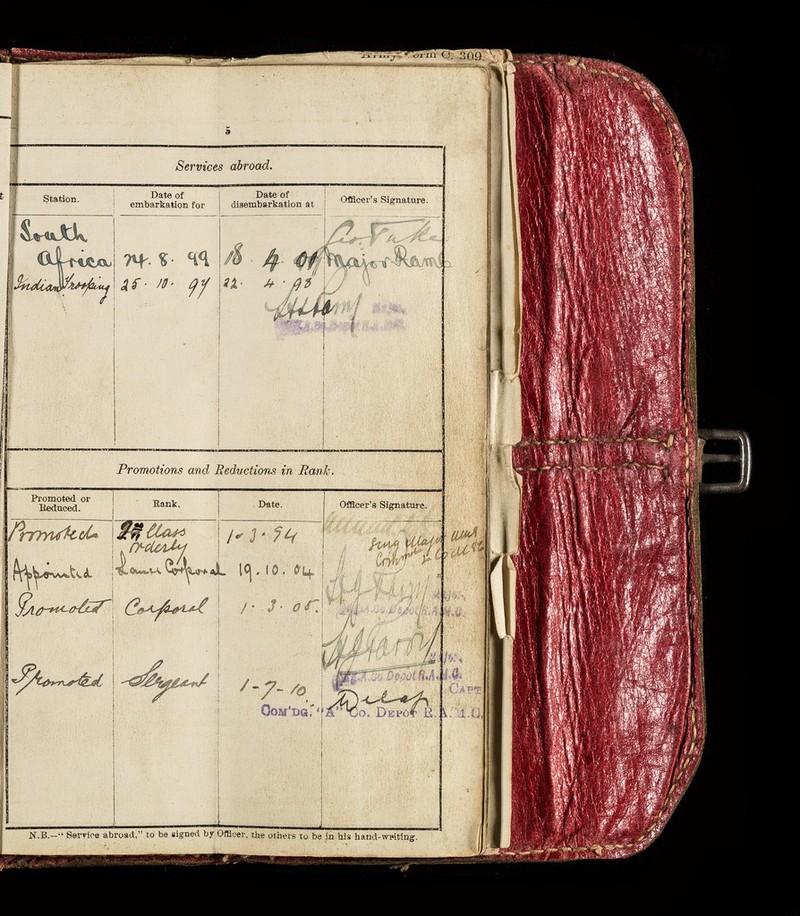 Army Form C. 309.
5
Services abroad.
Station. Date of embarkation for Date of disembarkation at Officer's Signature.
South
Africa 24. 8. 99 18 4 00 Major Ramc
Indian Trooping 25. 10. 97 22. 4. 98
Promotions and Reductions in Rank.
Promoted or Reduced. Rank. Date. Officer's Signature.
Promoted 2nd Class orderly 1-3-94
Surg Major AMS
Appointed Lance Corporal 19.10.04
Promoted Corporal 1. 3. 05.
Co. Depot R.A.M.C.
Promoted Sergeant 1-7-10.
Co. Depot R.A.M.C.
Capt
Com'dg. "A" Co. Depôt R.A.M.C.
N.B.—"Service abroad," to be signed by Officer, the others to be in his hand-writing.